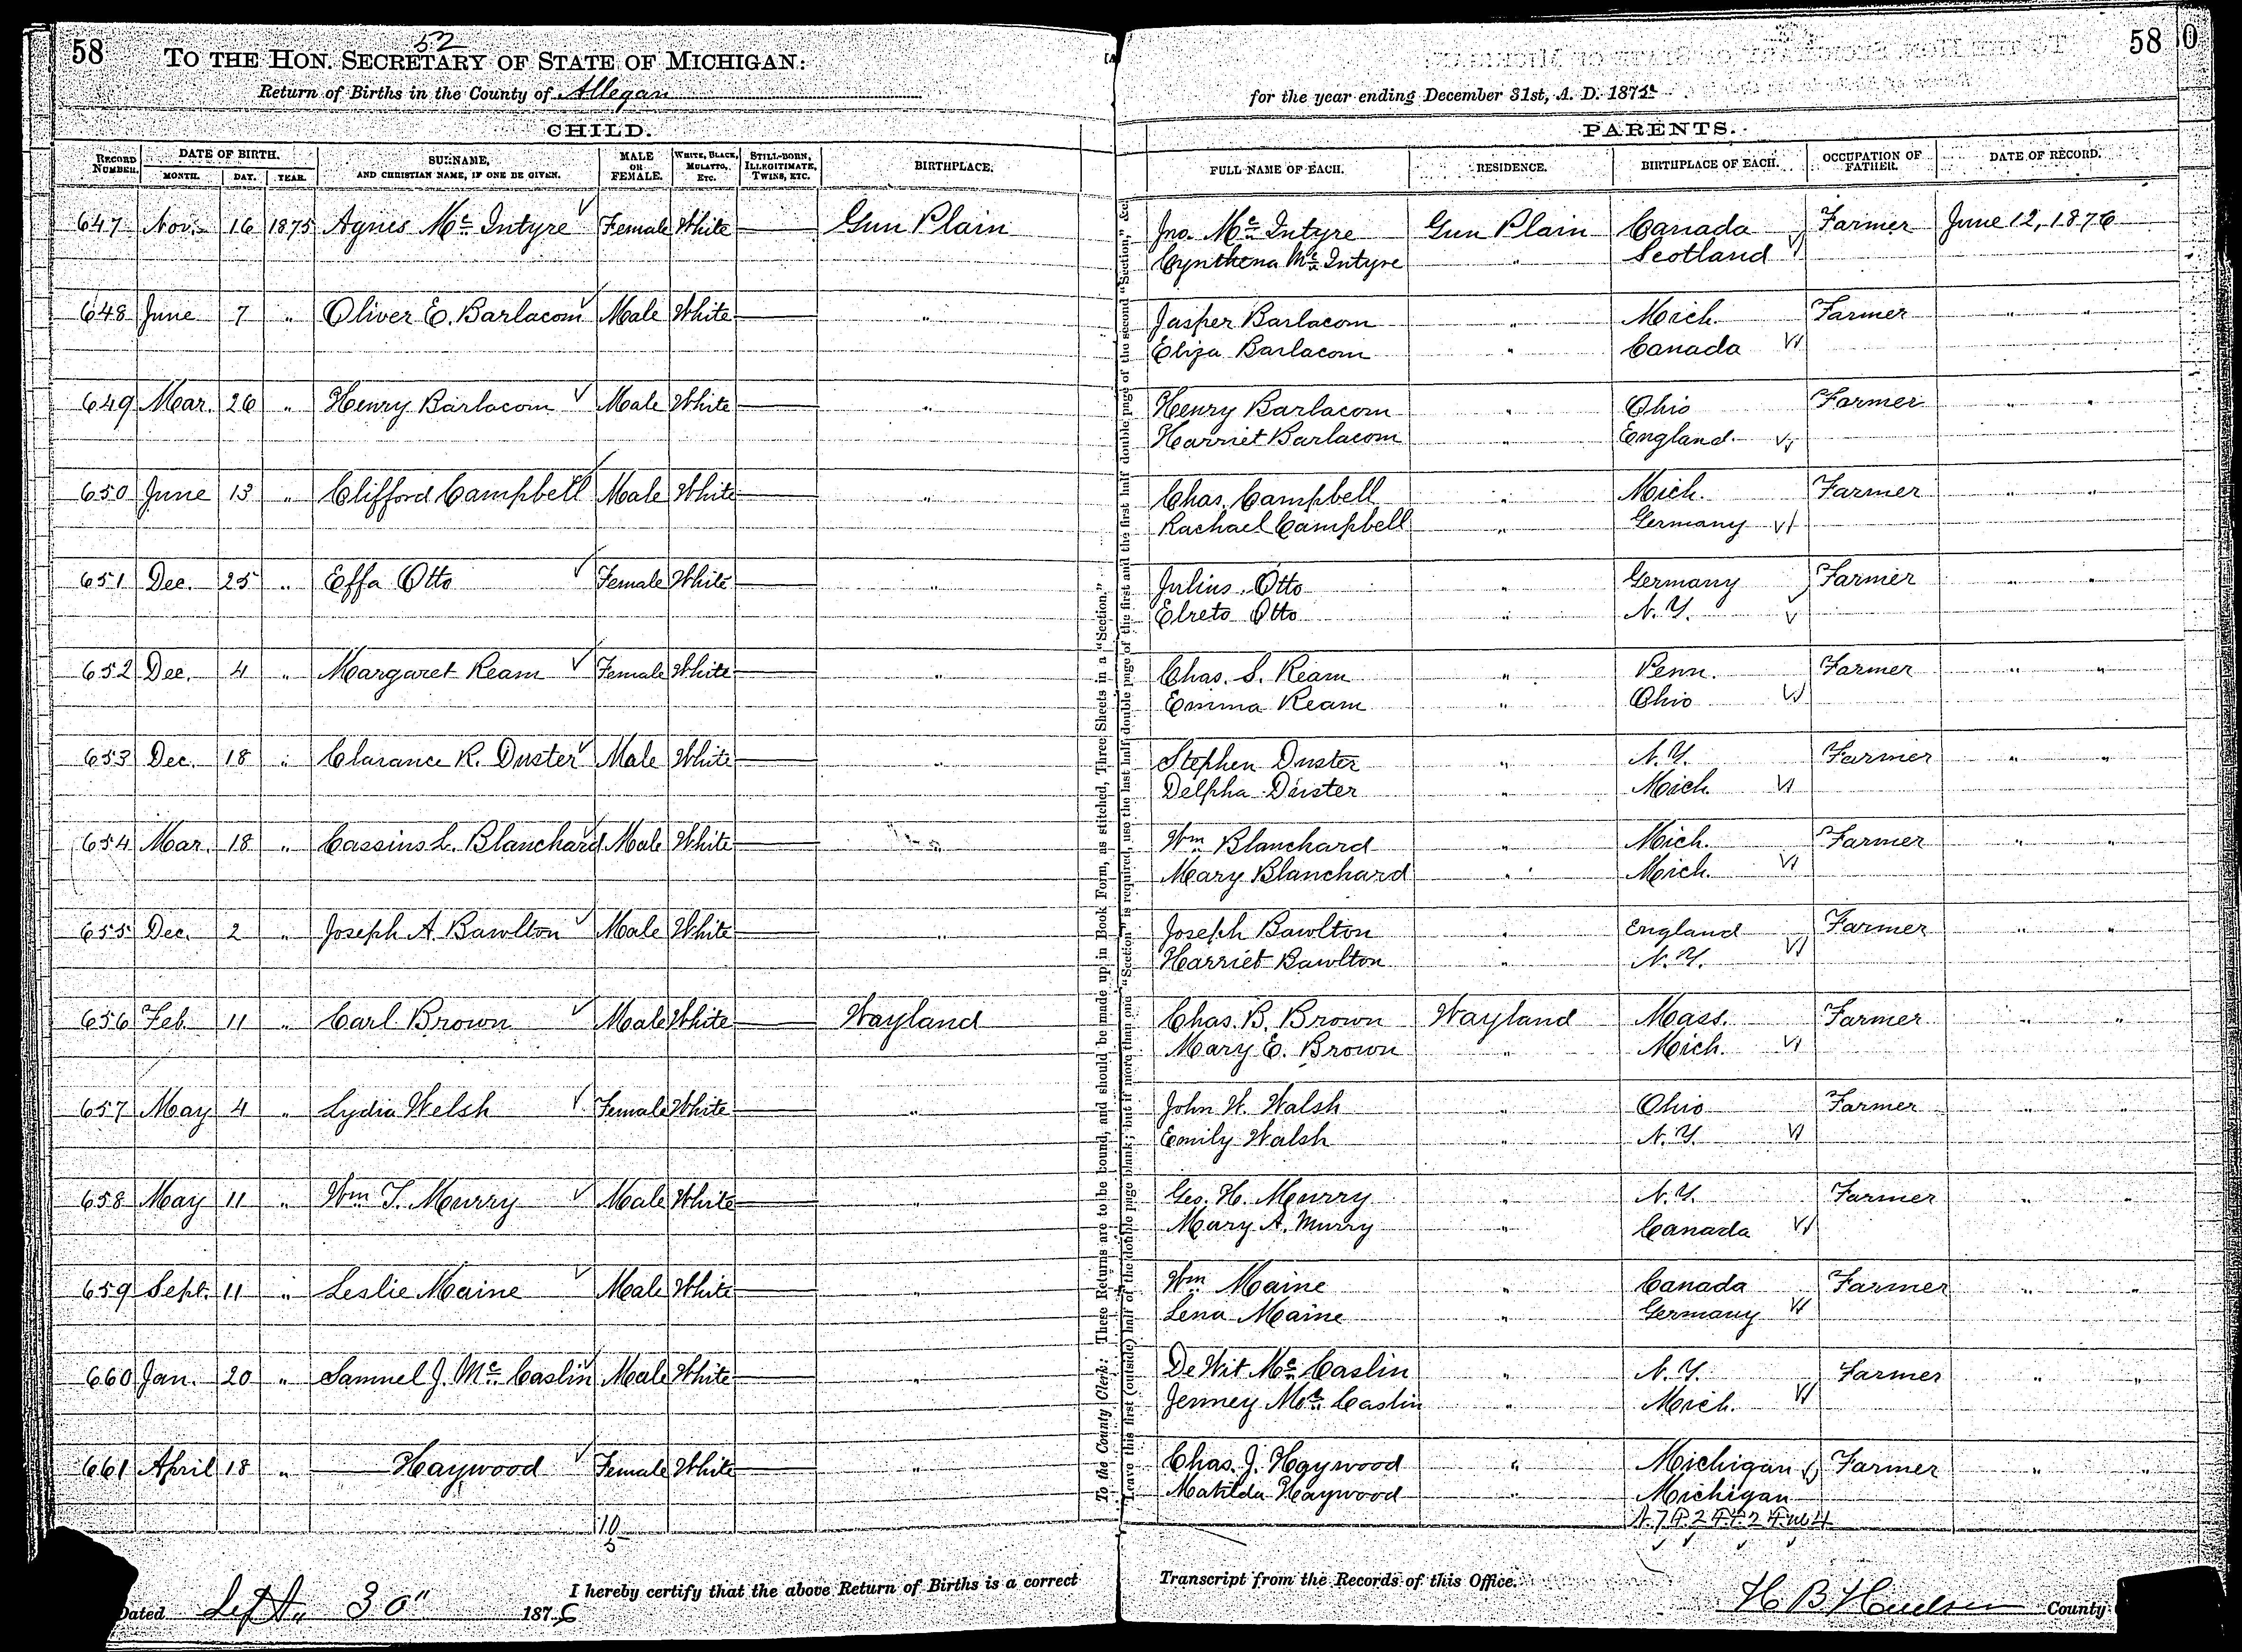 58 52 58 0
TO THE HON. SECRETARY OF STATE OF MICHIGAN:
Return of Births in the County of Allegan for the year ending December 31st, A. D. 1875
CHILD. PARENTS.
RECORD NUMBER. DATE OF BIRTH. MONTH. DAY. YEAR. SURNAME, AND CHRISTIAN NAME, IF ONE BE GIVEN. MALE OR FEMALE. WHITE, BLACK, MULATTO, ETC. STILL-BORN, ILLEGITIMATE, TWINS, ETC. BIRTHPLACE. FULL NAME OF EACH. RESIDENCE. BIRTHPLACE OF EACH. OCCUPATION OF FATHER. DATE OF RECORD.
647 Nov. 16 1875 Agnes Mc Intyre Female White Gun Plain Jno. Mc Intyre Gun Plain Canada Farmer June 12, 1876
Cynthena Mc Intyre " Scotland
648 June 7 " Oliver E. Barlacom Male White " Jasper Barlacom " Mich. Farmer " "
Eliza Barlacom " Canada
649 Mar. 26 " Henry Barlacom Male White " Henry Barlacom " Ohio Farmer " "
Harriet Barlacom " England
650 June 13 " Clifford Campbell Male White " Chas. Campbell " Mich. Farmer " "
Rachael Campbell " Germany
651 Dec. 25 " Effa Otto Female White " Julius Otto " Germany Farmer " "
Elreto Otto " N. Y.
652 Dec. 4 " Margaret Ream Female White " Chas. S. Ream " Penn. Farmer " "
Emma Ream " Ohio
653 Dec. 18 " Clarance R. Duster Male White " Stephen Duster " N. Y. Farmer " "
Delpha Duster " Mich.
654 Mar. 18 " Cassius L. Blanchard Male White " Wm Blanchard " Mich. Farmer " "
Mary Blanchard " Mich.
655 Dec. 2 " Joseph A. Bawlton Male White " Joseph Bawlton " England Farmer " "
Harriet Bawlton " N. Y.
656 Feb. 11 " Carl Brown Male White Wayland Chas. B. Brown Wayland Mass. Farmer " "
Mary E. Brown " Mich.
657 May 4 " Lydia Welsh Female White " John W. Walsh " Ohio Farmer " "
Emily Walsh " N. Y.
658 May 11 " Wm T. Murry Male White " Geo. H. Murry " N. Y. Farmer " "
Mary A. Murry " Canada
659 Sept. 11 " Leslie Maine Male White " Wm Maine " Canada Farmer " "
Lena Maine " Germany
660 Jan. 20 " Samuel J. Mc Caslin Male White " DeWit Mc Caslin " N. Y. Farmer " "
Jenney Mc Caslin " Mich.
661 April 18 " Haywood Female White " Chas. J. Haywood " Michigan Farmer " "
Matilda Haywood " Michigan
10
5
To the County Clerk: These Returns are to be bound, and should be made up in Book Form, as stitched, Three Sheets in a "Section."
Leave this first (outside) half of the double page blank; but if more than one "Section" is required, use the last half double page of the first and the first half double page of the second "Section," &c.
Dated Sept. 30" 1876 I hereby certify that the above Return of Births is a correct Transcript from the Records of this Office. H B Hudson County